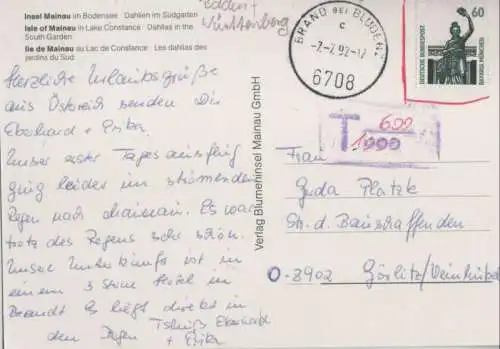 Insel Mainau im Bodensee · Dahlien im Südgarten
Isle of Mainau in Lake Constance · Dahlias in the
South Garden
Ile de Mainau au Lac de Constance · Les dahlias des
jardins du Sud
Württemberg
BRAND BEI BLUDENZ
c
-7.-7.92-17
6708
60
DEUTSCHE BUNDESPOST
BAVARIA MÜNCHEN
T 600
1000
Herzliche Urlaubsgrüße
aus Östreich senden Dir
Eberhard + Erika.
Unser erster Tagesausflug
ging leider im strömenden
Regen nach Mainau. Es war
trotz des Regens sehr schön.
Unsere Unterkunft ist in
einem 3 Sterne Hotel in
Brandt. Es liegt direkt in
den Tschüß Eberhard
+ Erika
Verlag Blumeninsel Mainau GmbH
Frau
Guda Platzk
Str. d. Bauschaffenden
O-8902 Görlitz/Weinhübel